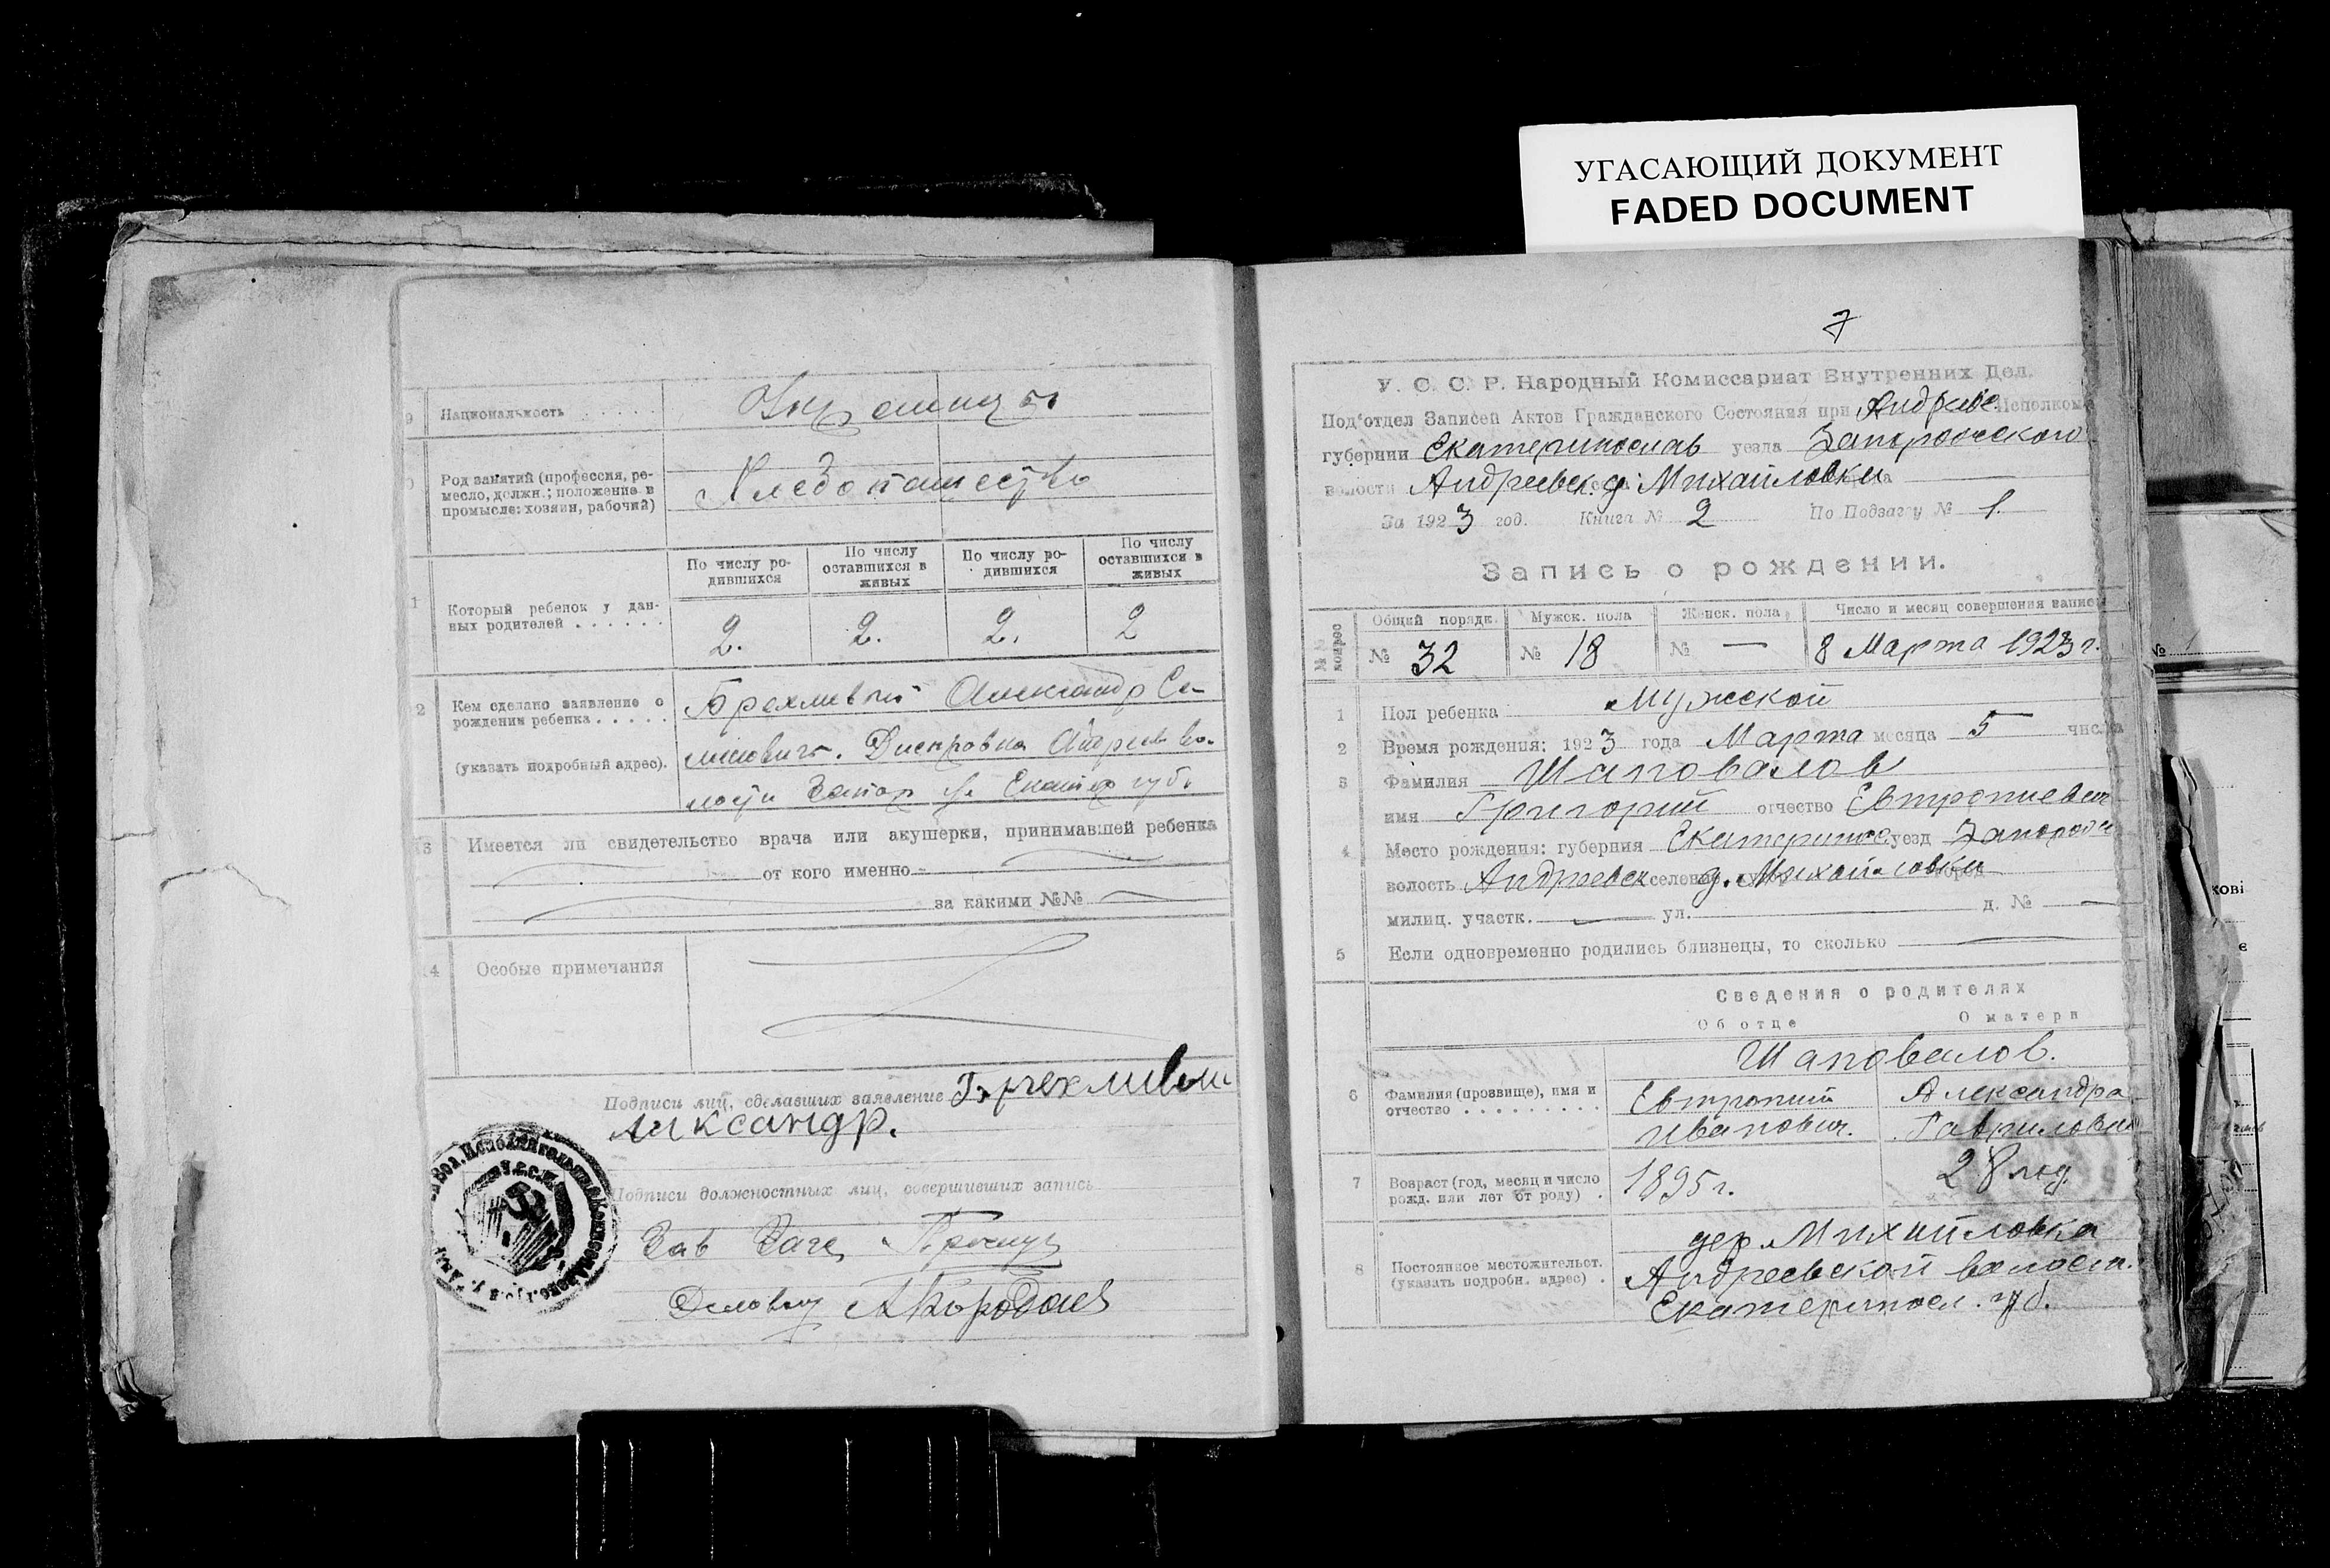 УГАСАЮЩИЙ ДОКУМЕНТ
FADED DOCUMENT
9 Национальность . . . . . Украинцы
Род занятий (профессия, ре-
месло, должн.; положение в
промысле: хозяин, рабочий)
Хлебопашество
По числу ро-
дившихся
По числу
оставшихся в
живых
По числу ро-
дившихся
По числу
оставшихся в
живых
1 Который ребенок у дан-
ных родителей . . . . . .
2. 2. 2. 2
2 Кем сделано заявление о
рождении ребенка . . . . .
(указать подробный адрес).
Брехливый Александр Се-
Андреев во-
лости Запор у. Екатер губ.
13 Имеется ли свидетельство врача или акушерки, принимавшей ребенка
от кого именно
за какими №№
14 Особые примечания
Подписи лиц, сделавших заявление Брехливый
Аликсандр.
Подписи должностных лиц, совершивших запись
Зав Загс
Деловод
7
У. С. С. Р. Народный Комиссариат Внутренних Дел.
Под'отдел Записей Актов Гражданского Состояния при Андреев. Исполком
губернии Екатеринослав уезда Запорожского
волости Андреевск. д. Михайловки
За 1923 год. Книга № 2 По Подзагсу № 1.
Запись о рождении.
№№ вопрос
Общий порядк. Мужск. пола Женск. пола Число и месяц совершения записи
№ 32 № 18 № — 8 Марта 1923 г.
1 Пол ребенка Мужской
2 Время рождения: 1923 года Марта месяца 5 числа
3 Фамилия Шаповалов
имя Григорий отчество Евтропиевич
4 Место рождения: губерния Екатеринос уезд Запорож
волость Андреевск селение д. Михайловки город
милиц. участк. — ул. — д. № —
5 Если одновременно родились близнецы, то сколько —
Сведения о родителях
Об отце О матери
Шаповалов.
6 Фамилия (прозвище), имя и
отчество . . . . . . . . .
Евтропий Александра
Иванович. Гавриловна
7 Возраст (год, месяц и число
рожд. или лет от роду) .
1895 г. 28 год.
8 Постоянное местожительст.
(указать подробн. адрес) .
дер. Михайловка
Андреевской волост.
Екатериносл. губ.
№ 1
кові
є